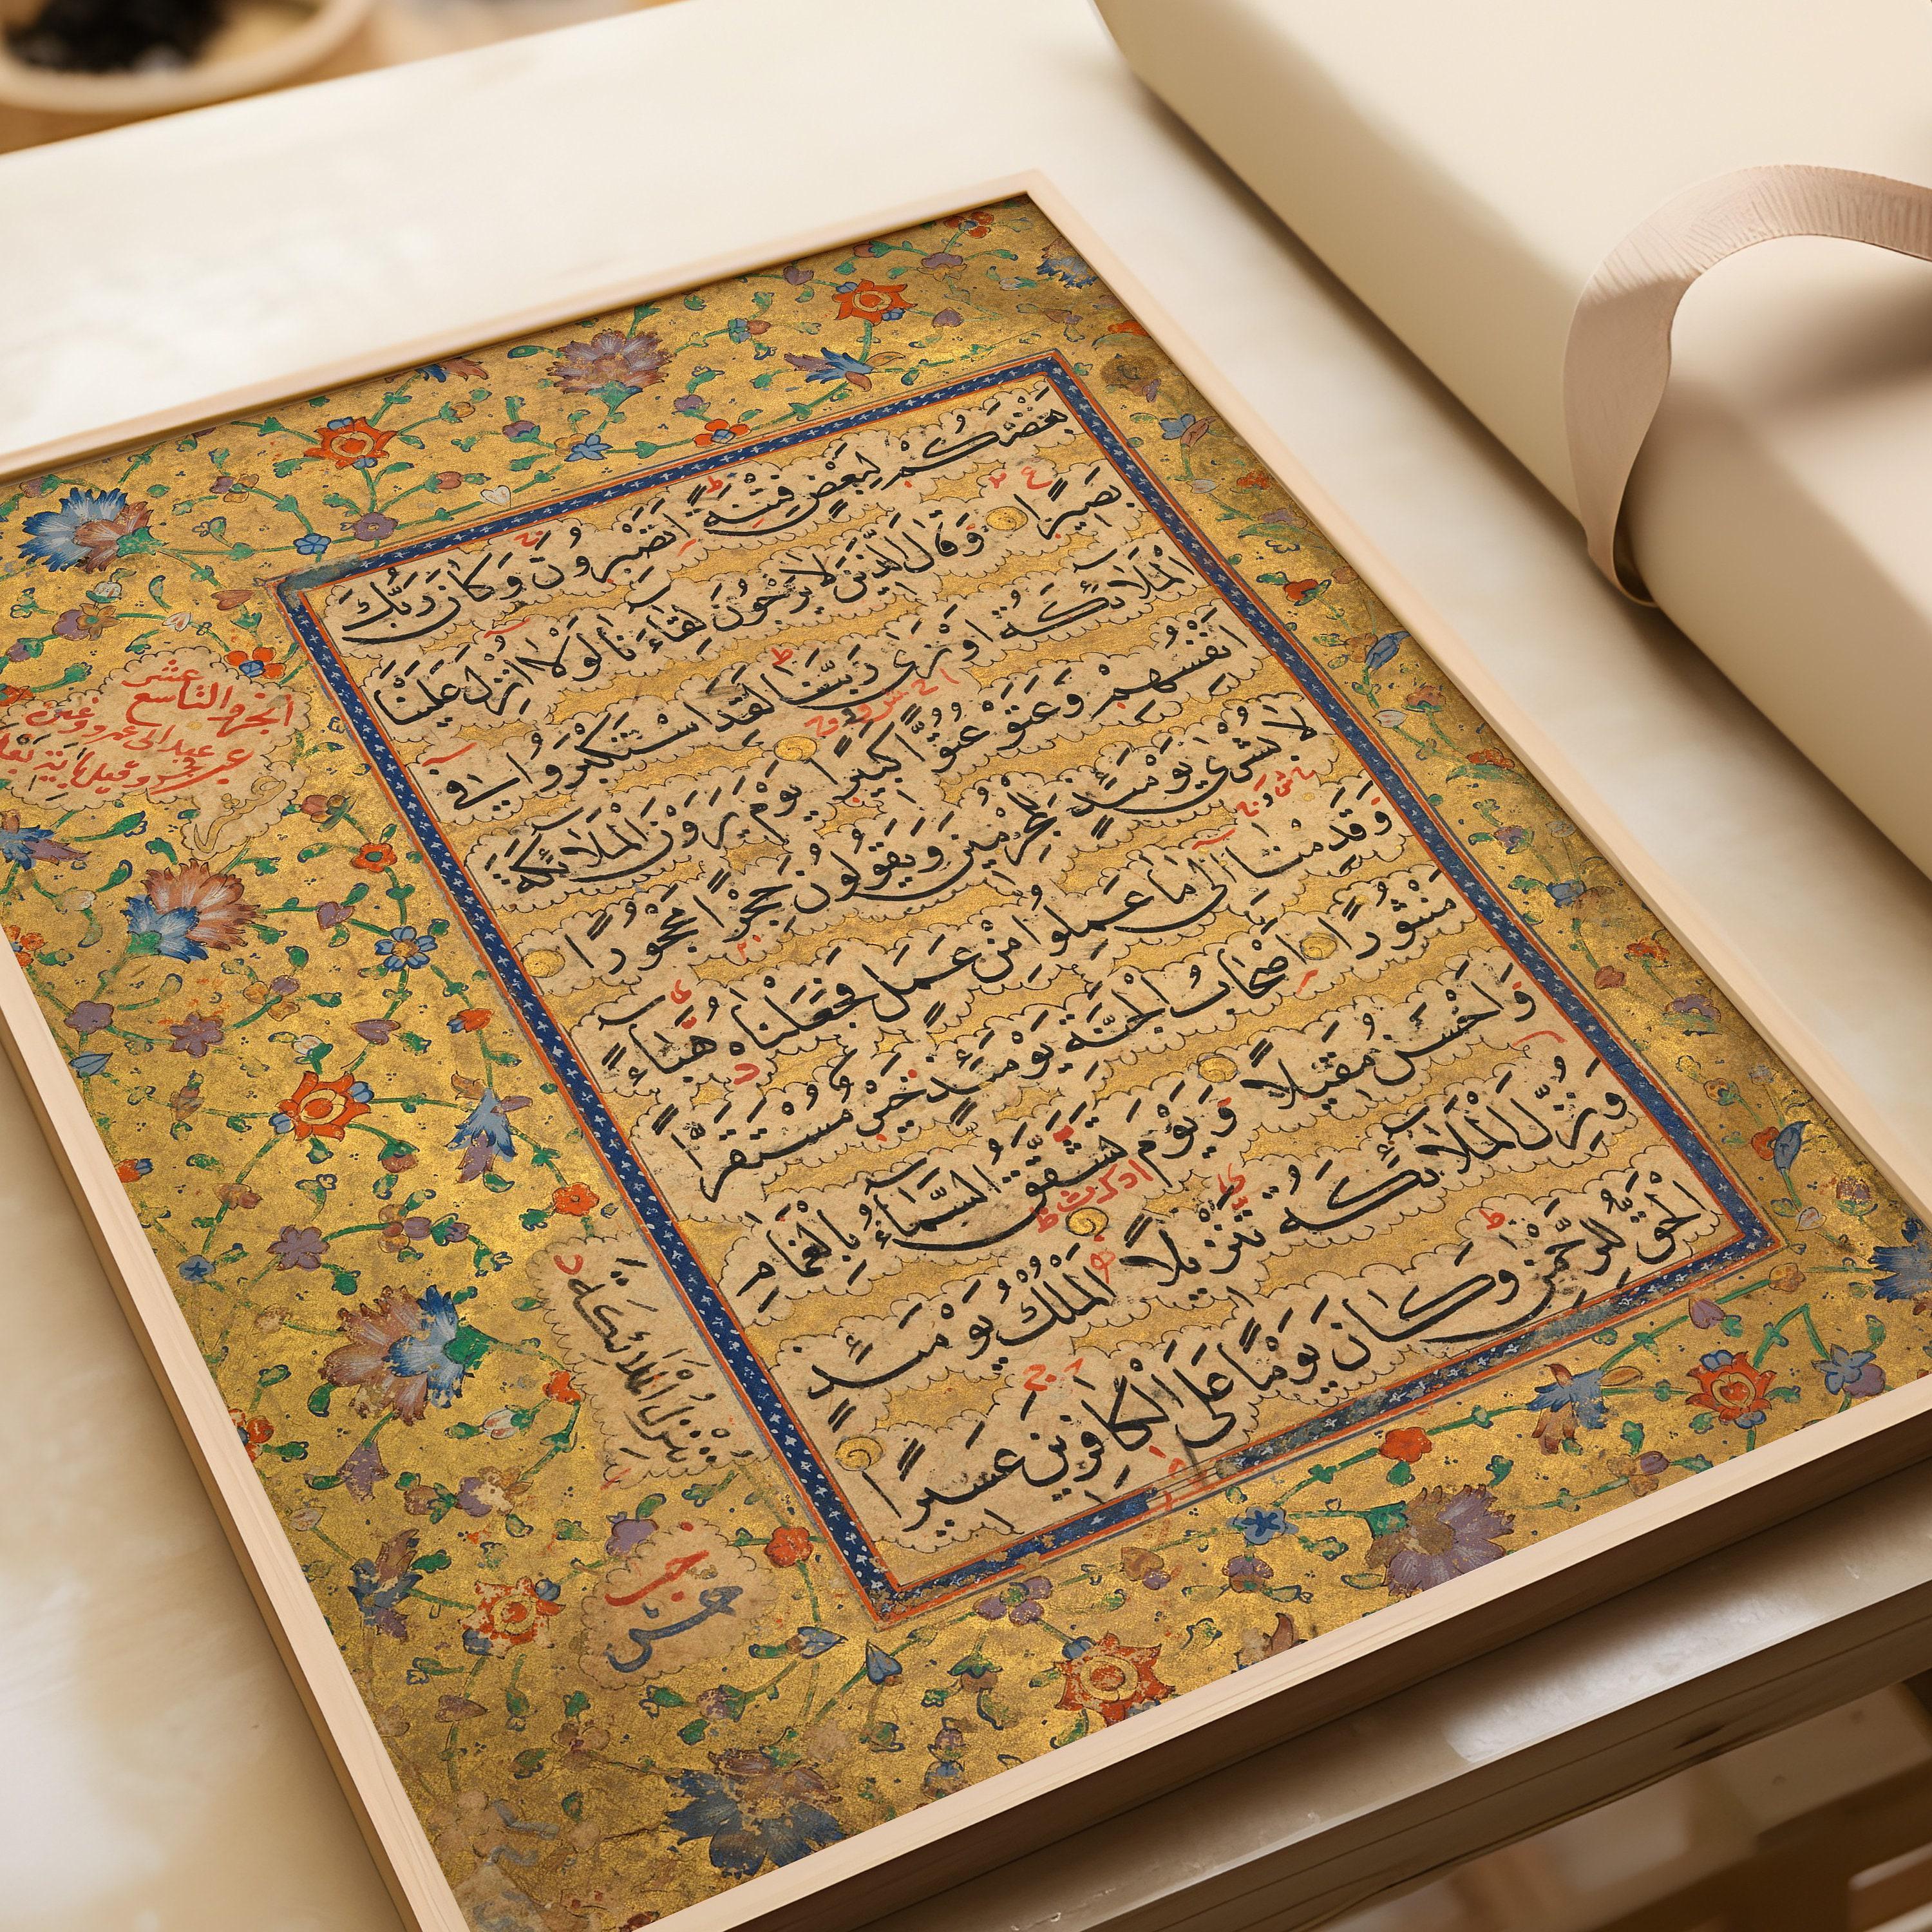 بَعْضَكُمْ لِبَعْضٍ فِتْنَةً اَتَصْبِرُونَ وَكَانَ رَبُّكَ
بَصِيرًا وَقَالَ الَّذِينَ لَا يَرْجُونَ لِقَاءَنَا لَوْلَا اُنْزِلَ عَلَيْنَا
الْمَلَائِكَةُ اَوْ نَرَى رَبَّنَا لَقَدِ اسْتَكْبَرُوا فِي
اَنْفُسِهِمْ وَعَتَوْ عُتُوًّا كَبِيرًا يَوْمَ يَرَوْنَ الْمَلَائِكَةَ
لَا بُشْرَى يَوْمَئِذٍ لِلْمُجْرِمِينَ وَيَقُولُونَ حِجْرًا مَحْجُورًا
وَقَدِمْنَا اِلَى مَا عَمِلُوا مِنْ عَمَلٍ فَجَعَلْنَاهُ هَبَاءً
مَنْثُورًا اَصْحَابُ الْجَنَّةِ يَوْمَئِذٍ خَيْرٌ مُسْتَقَرًّا
وَاَحْسَنُ مَقِيلًا وَيَوْمَ تَشَقَّقُ السَّمَاءُ بِالْغَمَامِ
وَنُزِّلَ الْمَلَائِكَةُ تَنْزِيلًا الْمُلْكُ يَوْمَئِذٍ
الْحَقُّ لِلرَّحْمَنِ وَكَانَ يَوْمًا عَلَى الْكَافِرِينَ عَسِيرًا
الجزو التاسع عشر
نُنْزِلُ الْمَلَائِكَةَ